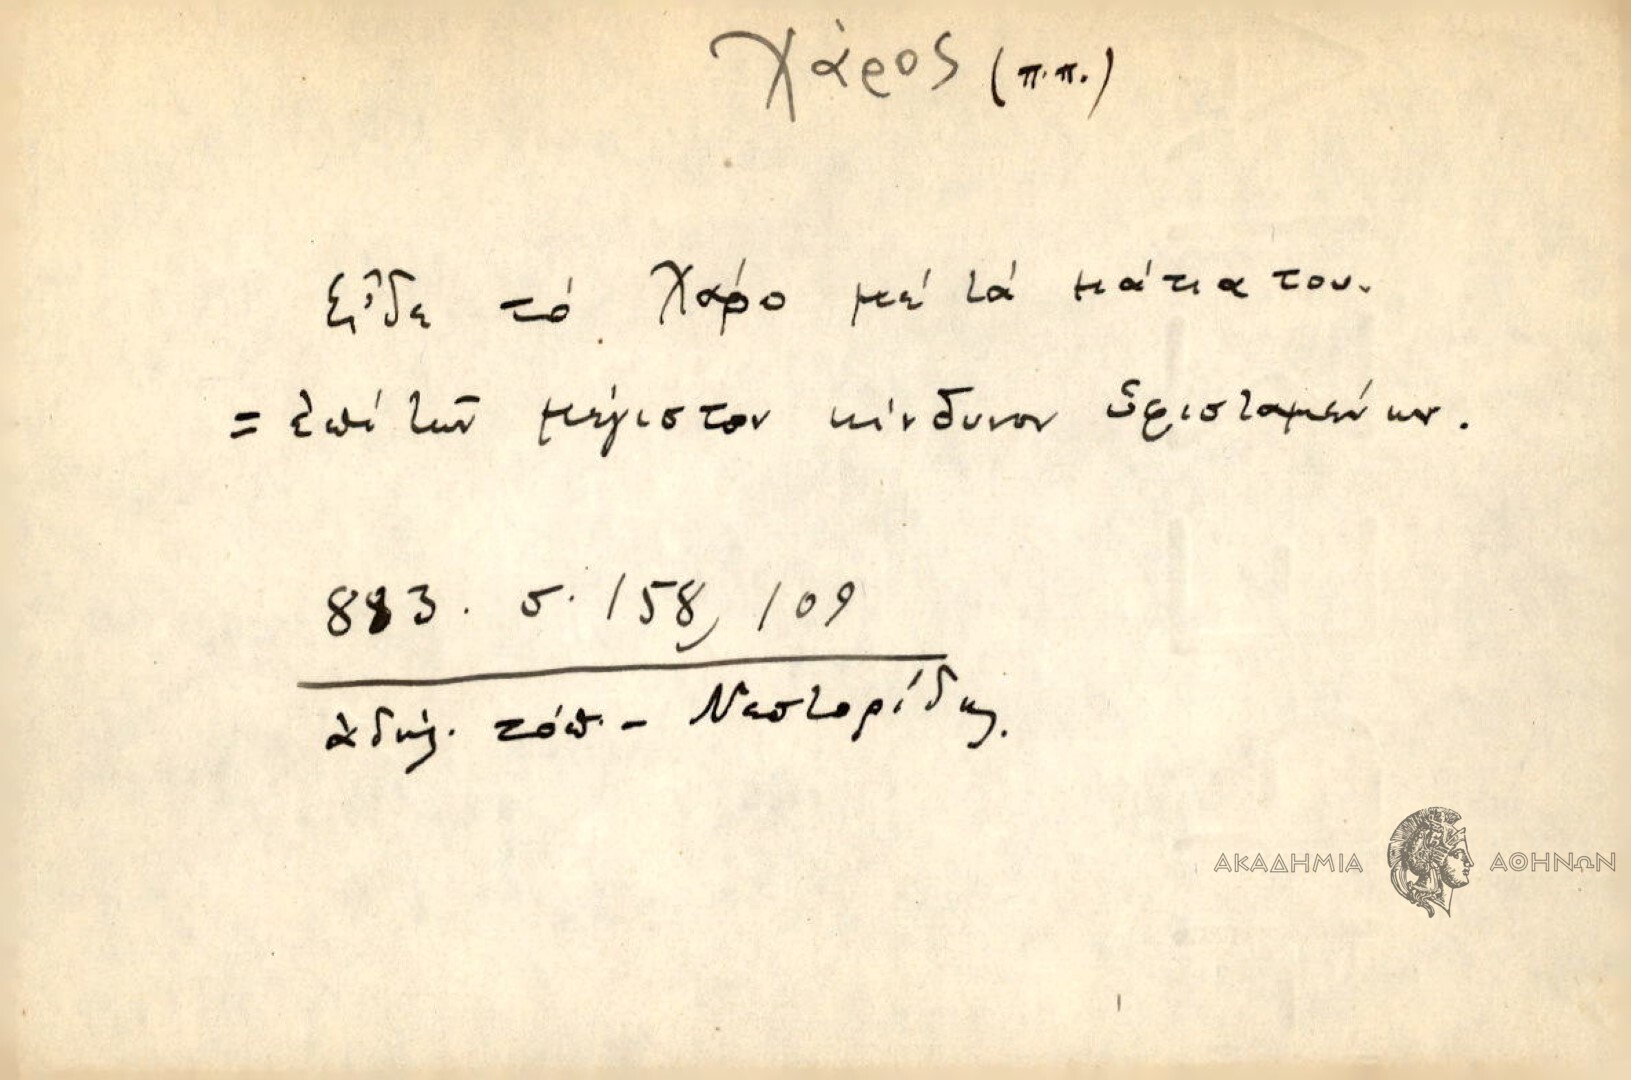 Χάρος (π.π.)
Εἶδε τό Χάρο μέ τά μάτια του.
= ἐπί τῶν μέγιστον κίνδυνον ὑφισταμένων.
883. σ. 158, 109
ἀδήλ. τόπ. - Νεστορίδης.
ΑΚΑΔΗΜΙΑ ΑΘΗΝΩΝ